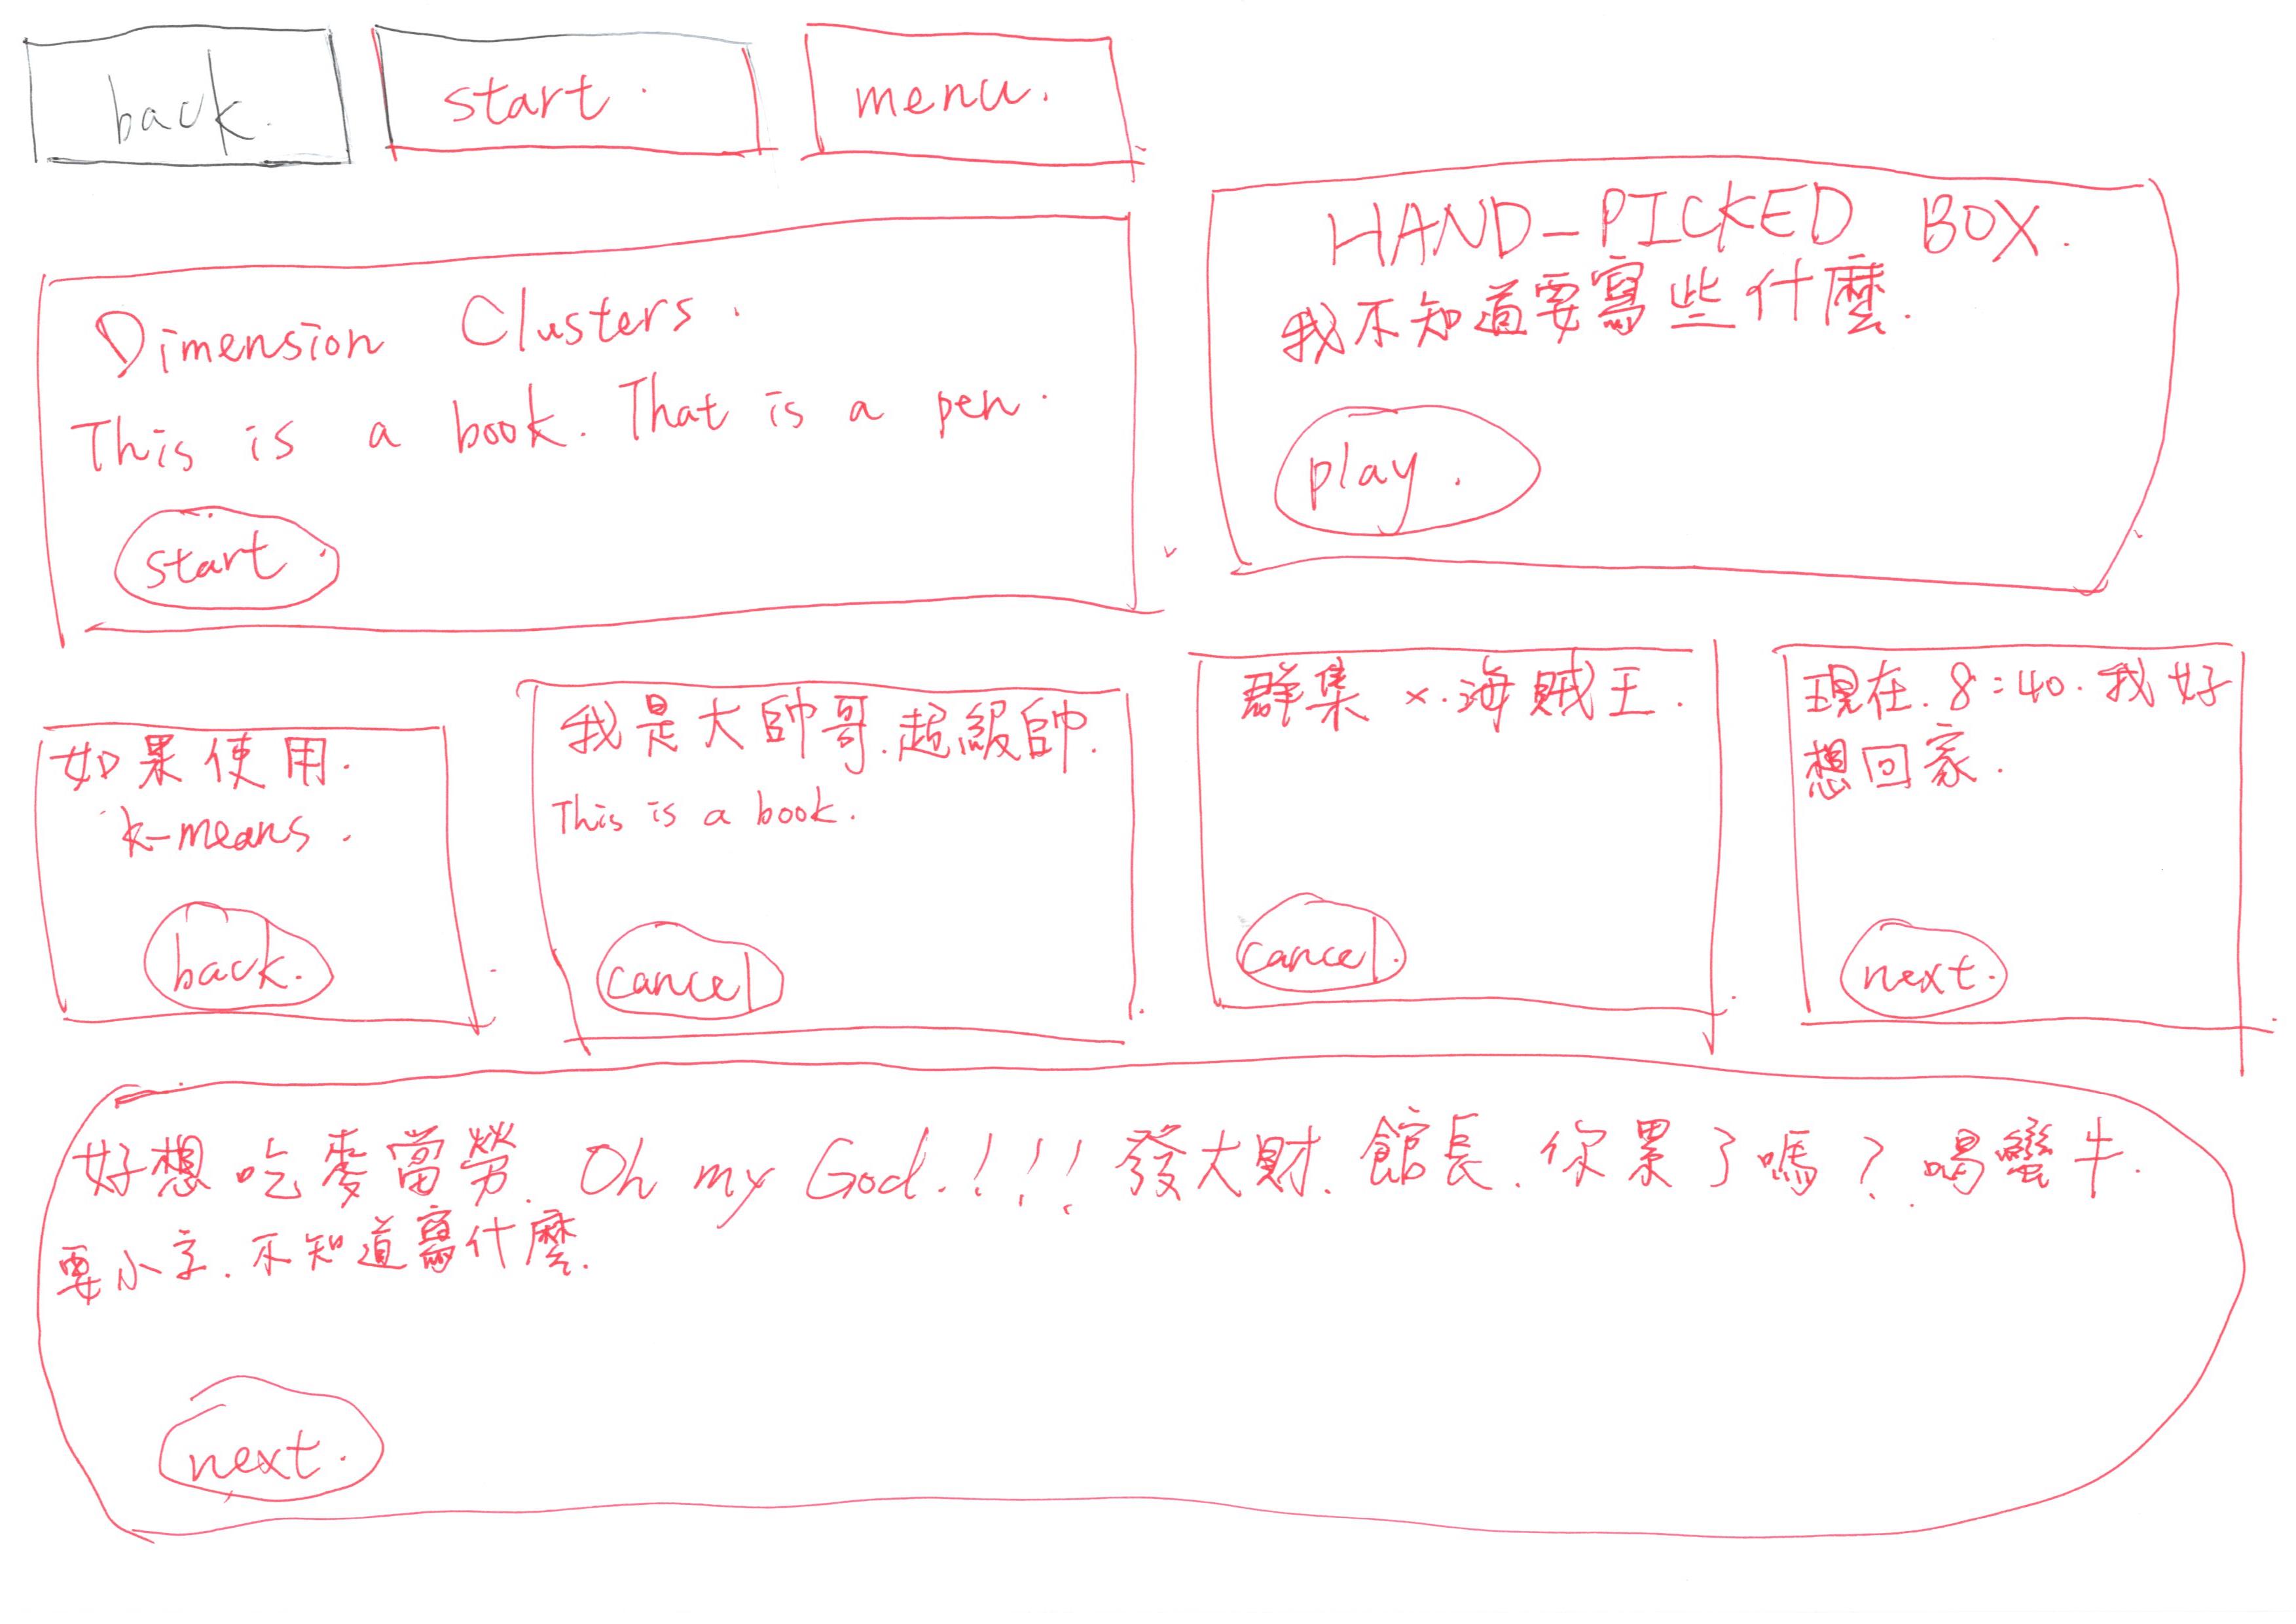 back.
start.
menu.
Dimension Clusters.
This is a book. That is a pen.
start.
HAND-PICKED BOX.
我不知道要寫些什麼.
play.
如果使用.
k-means.
back.
我是大帥哥.超級帥.
This is a book.
cancel
群集 x.海賊王.
cancel.
現在.8:40.我好
想回家.
next.
好想吃麥當勞. Oh my God.!!! 發大財.館長.你累了嗎?.喝蠻牛.
要小字.不知道寫什麼.
next.